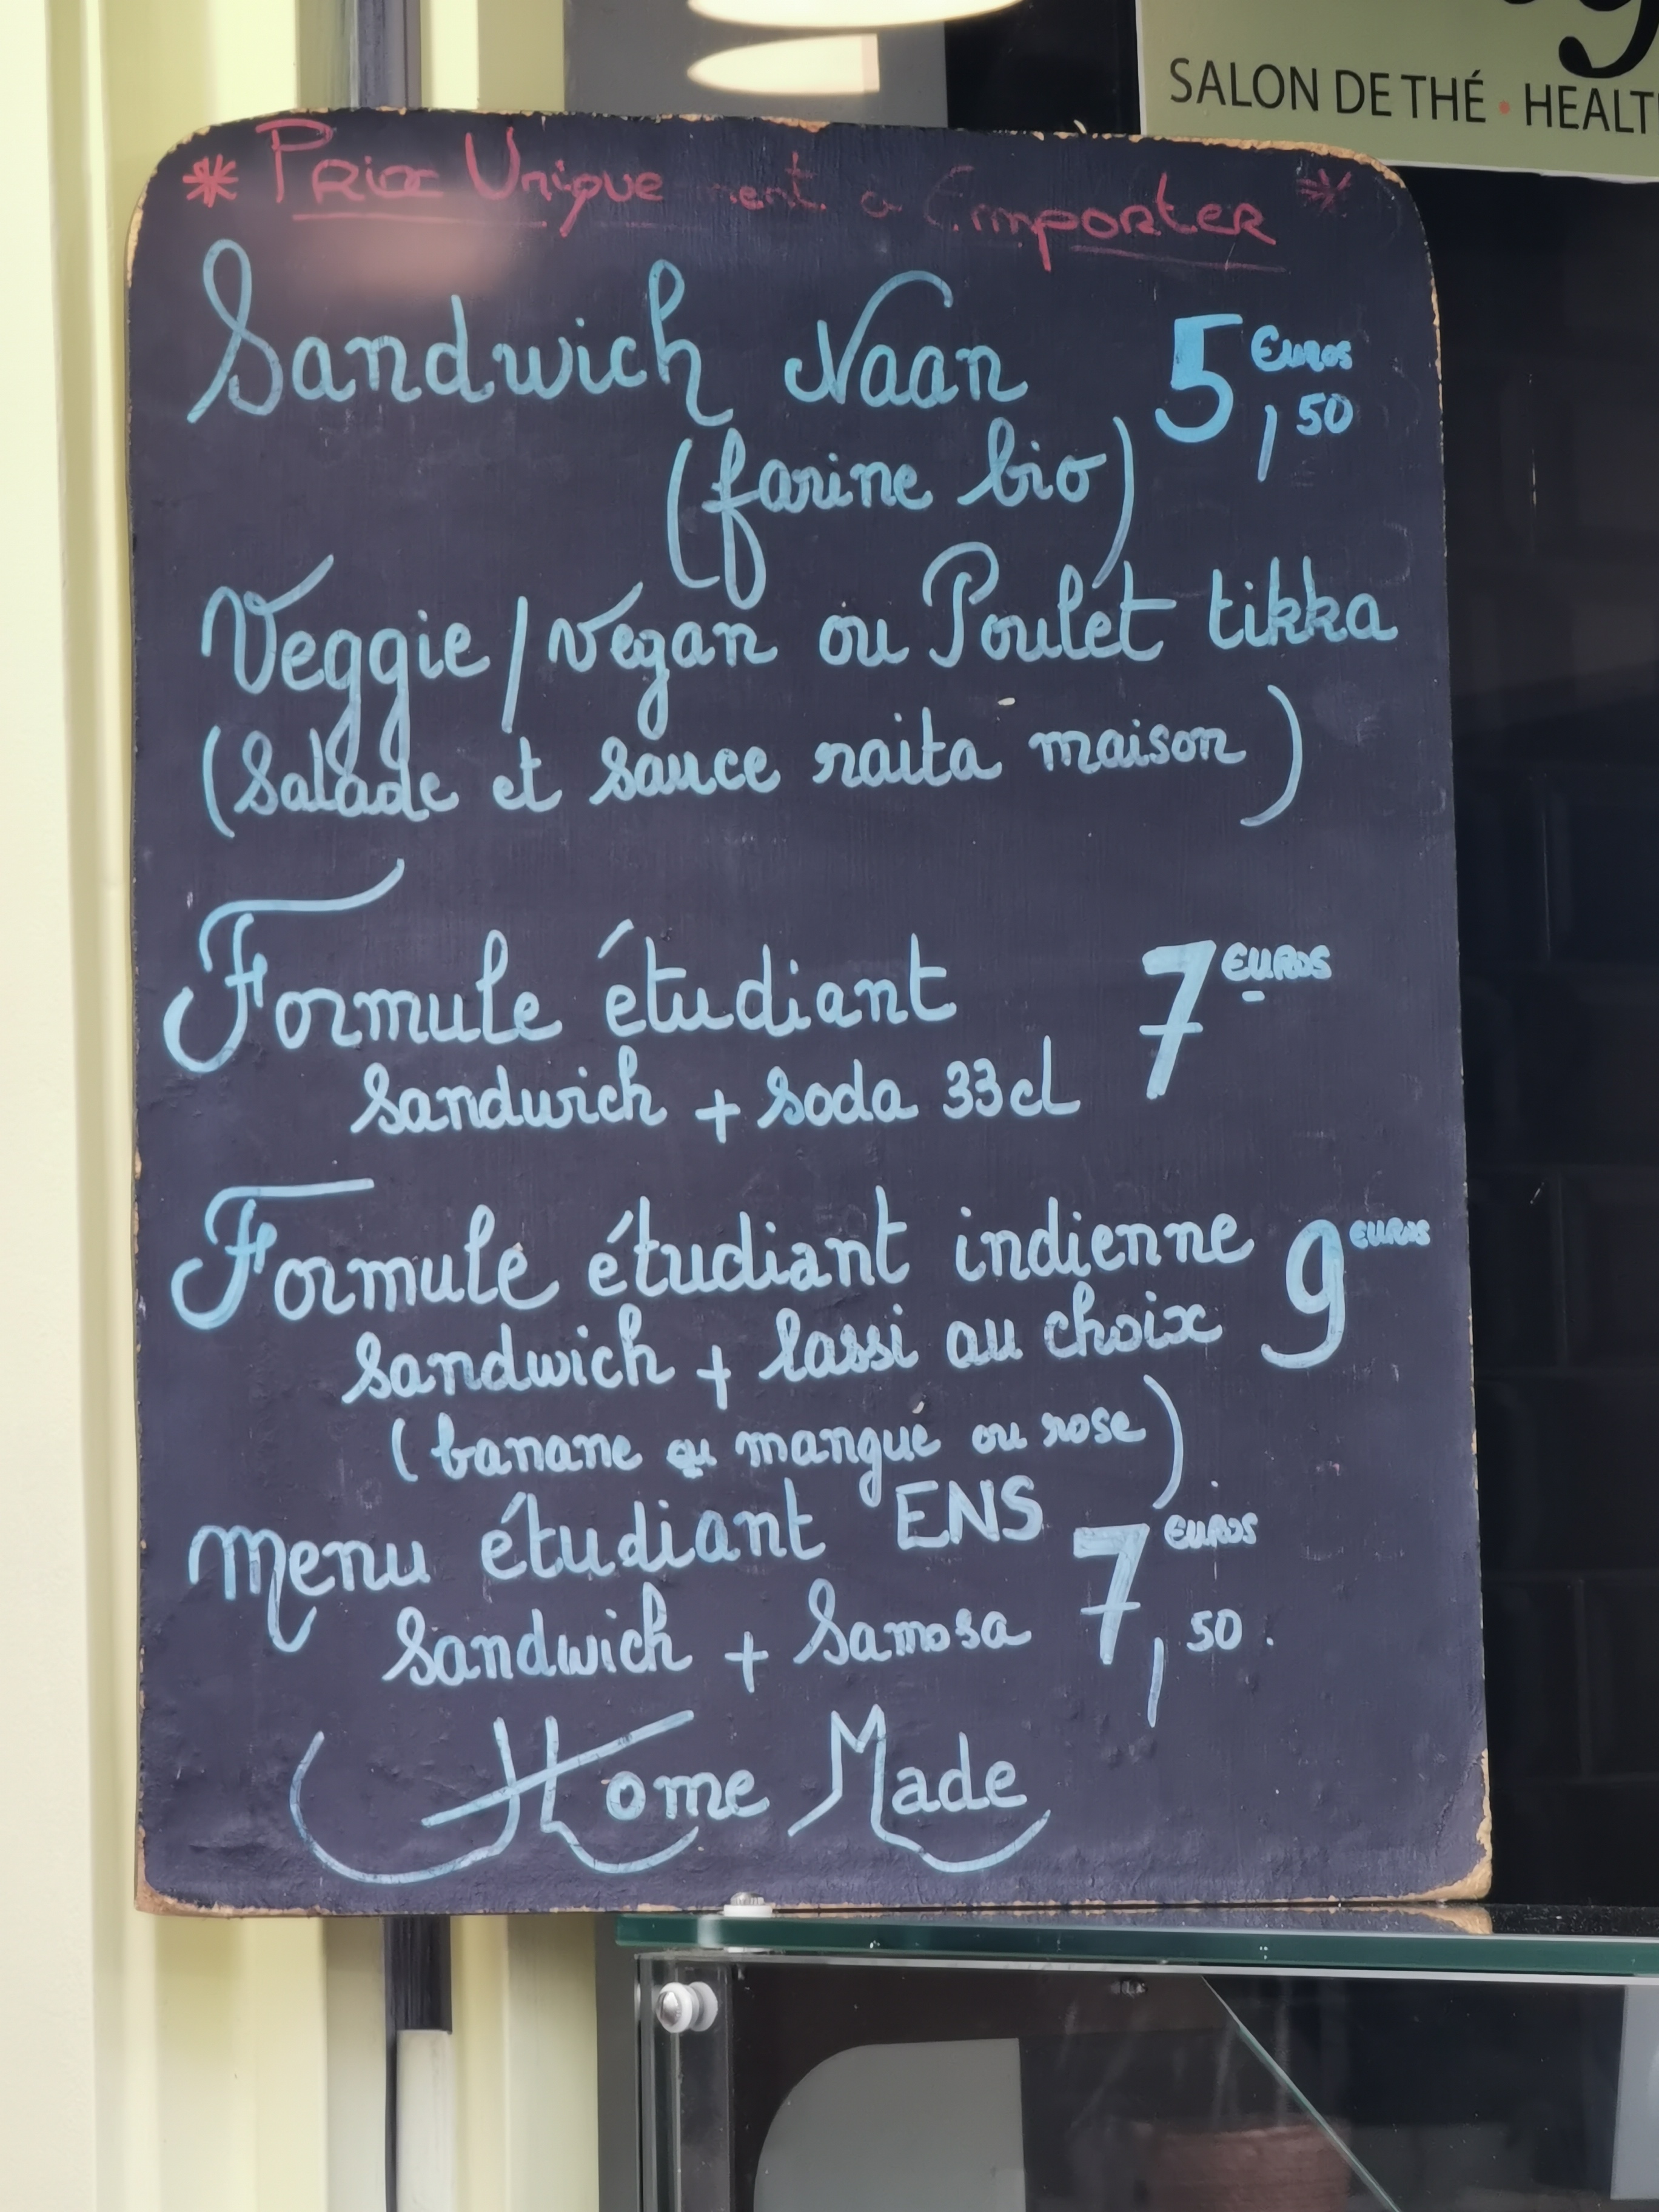 SALON DE THÉ • HEALT
* Prix Unique ment à Emporter *
Sandwich Naan 5 Euros ,50
(farine bio)
Veggie / Vegan ou Poulet tikka
(Salade et sauce raita maison)
Formule étudiant 7 EUROS
sandwich + soda 33cl
Formule étudiant indienne 9 EUROS
sandwich + lassi au choix
(banane ou mangue ou rose)
Menu étudiant ENS 7 EUROS ,50.
Sandwich + Samosa
Home Made